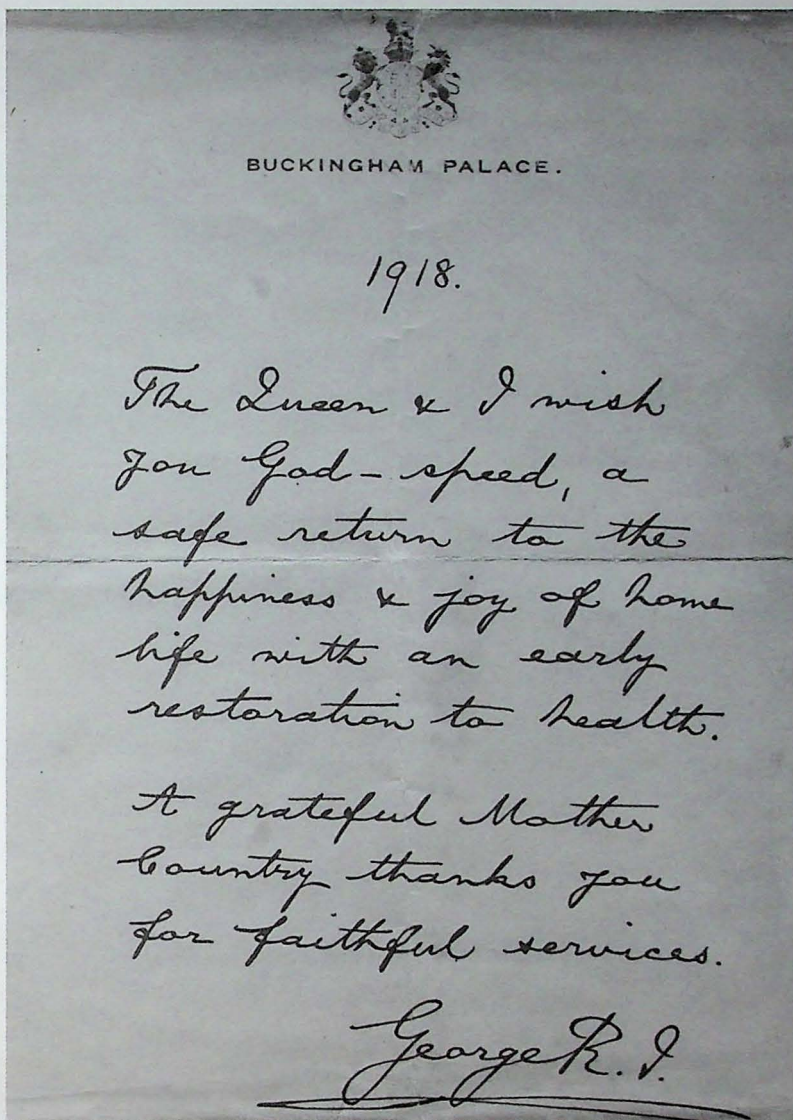 BUCKINGHAM PALACE.
1918.
The Queen & I wish
you God-speed, a
safe return to the
happiness & joy of home
life with an early
restoration to health.
A grateful Mother
Country thanks you
for faithful services.
George R.I.